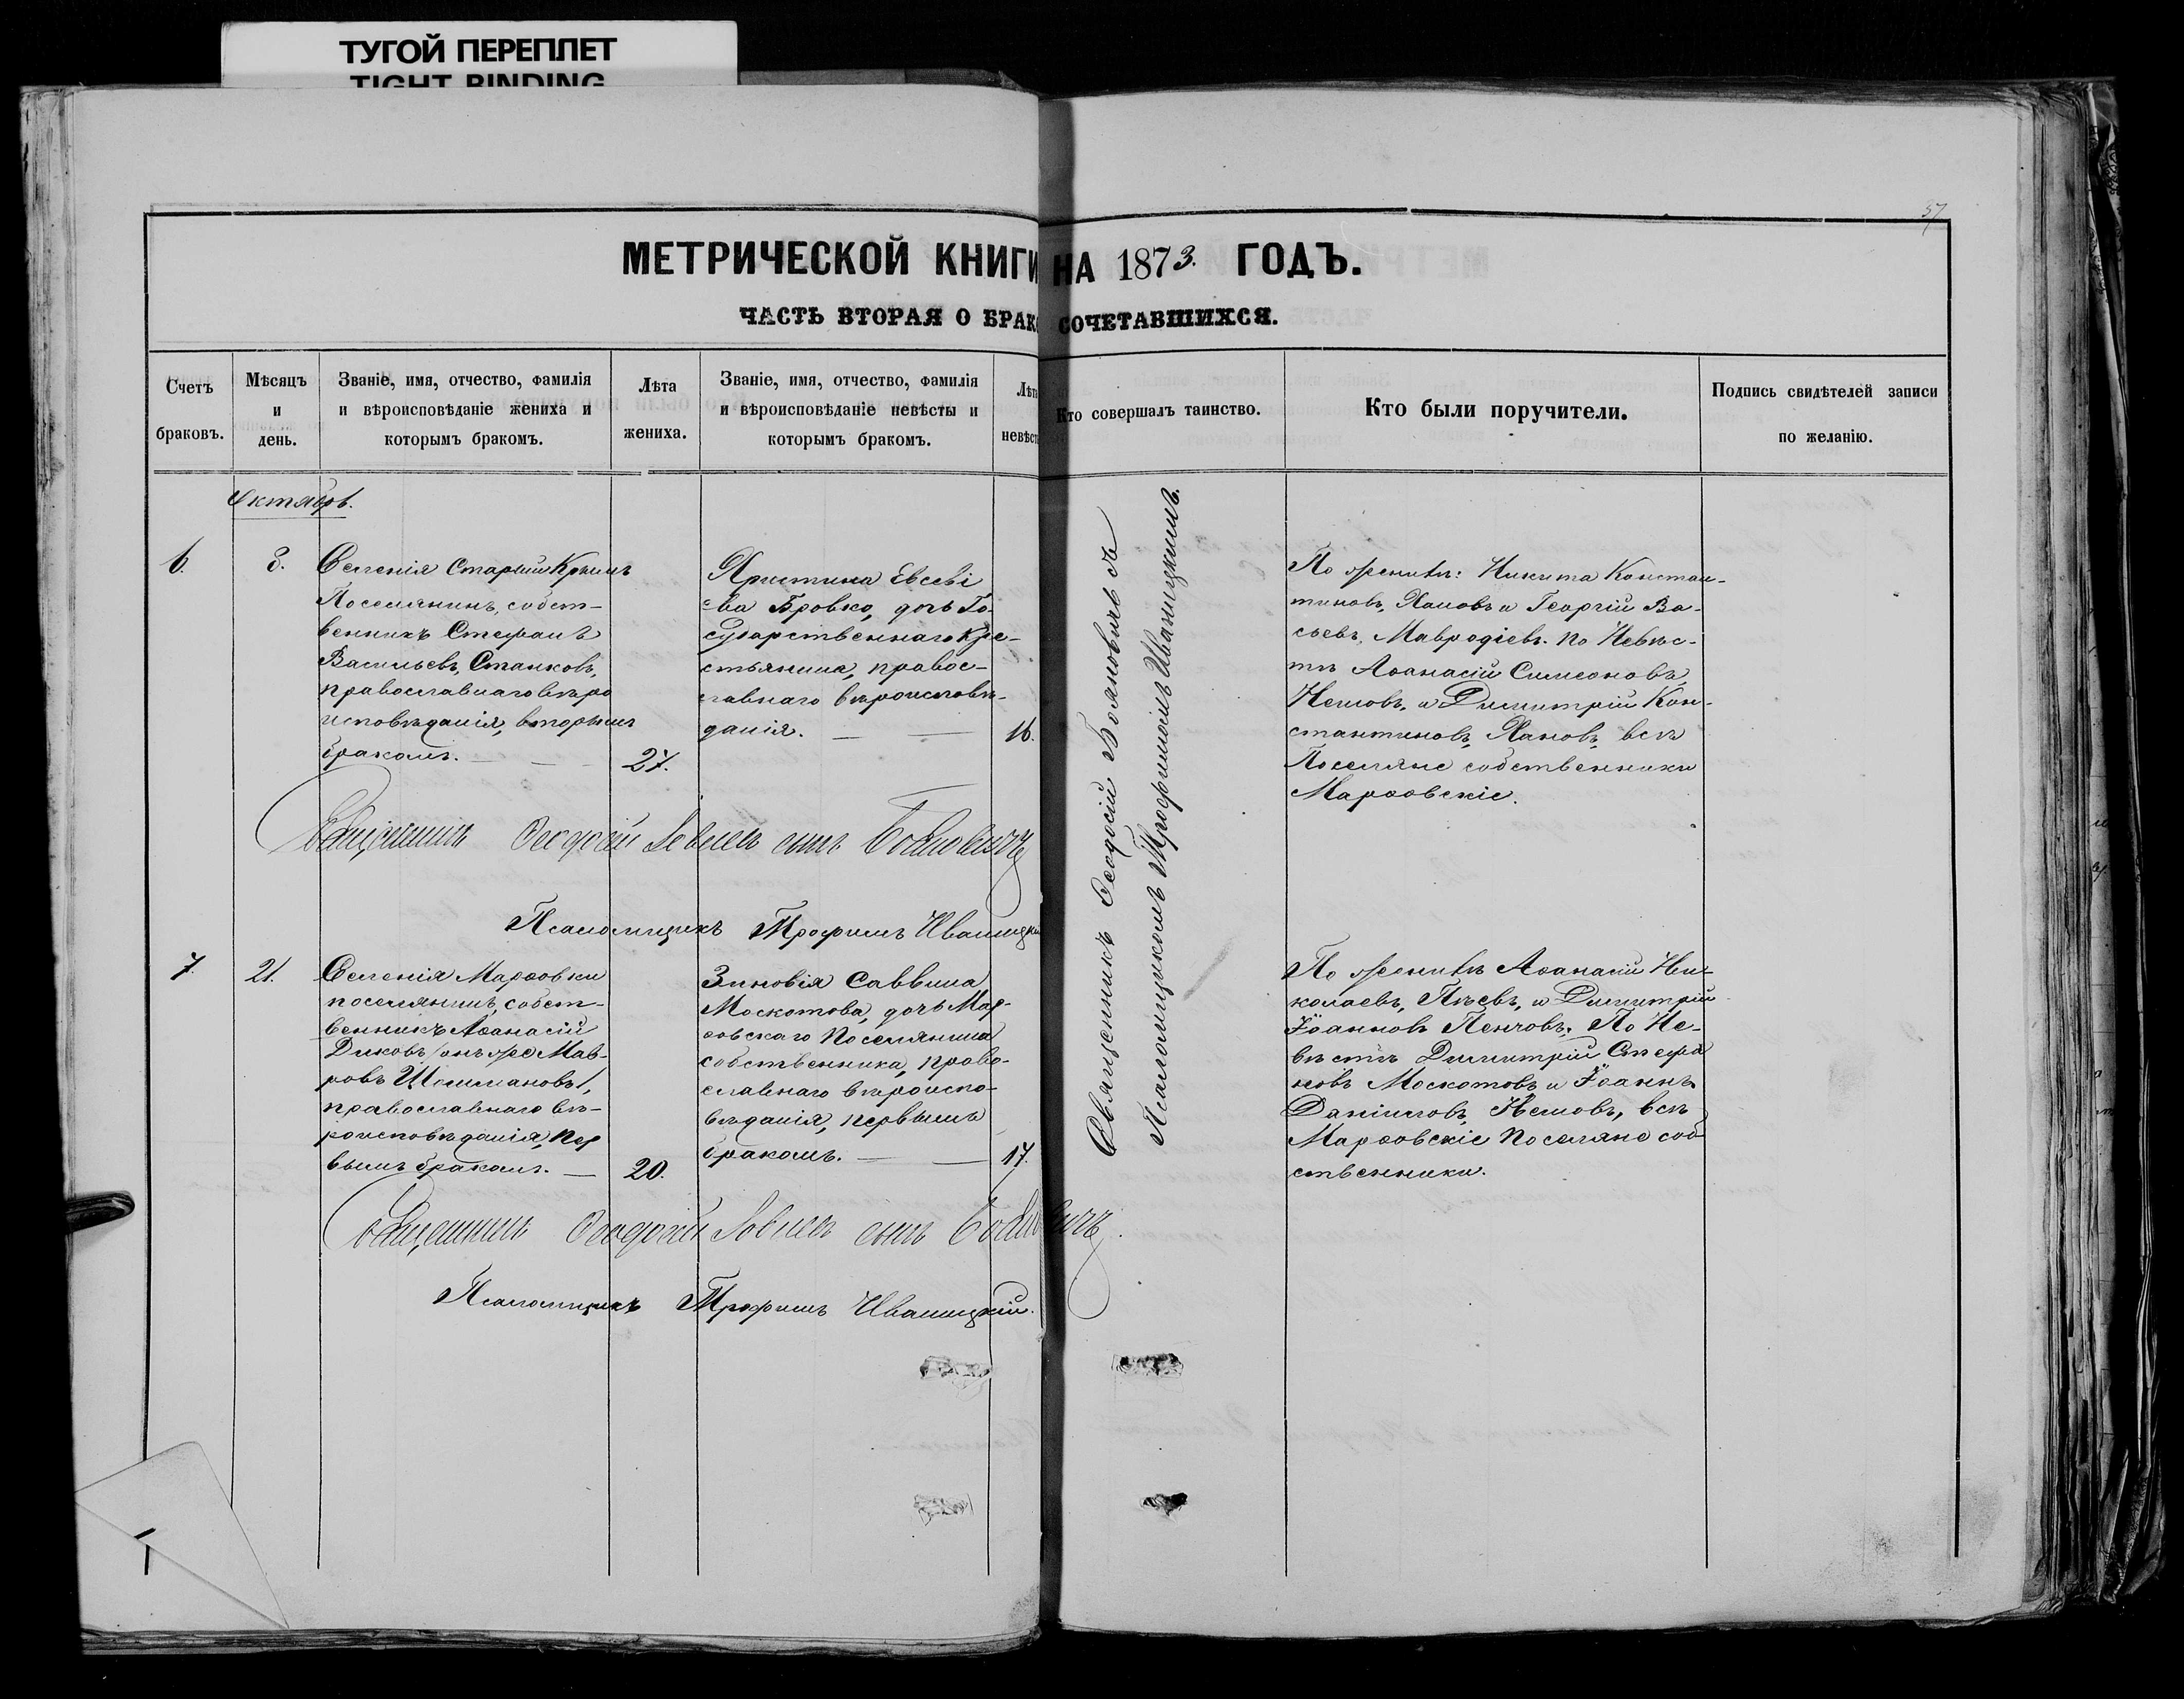 ТУГОЙ ПЕРЕПЛЕТ
TIGHT BINDING
57
МЕТРИЧЕСКОЙ КНИГИ НА 1873. ГОДЪ.
ЧАСТЬ ВТОРАЯ О БРАКОСОЧЕТАВШИХСЯ.
Счетъ
браковъ.
Мѣсяцъ
и
день.
Званіе, имя, отчество, фамилія
и вѣроисповѣданіе жениха и
которымъ бракомъ.
Лѣта
жениха.
Званіе, имя, отчество, фамилія
и вѣроисповѣданіе невѣсты и
которымъ бракомъ.
Лѣта
невѣсты
Кто совершалъ таинство.
Кто были поручители.
Подпись свидѣтелей записи
по желанію.
Октябрь.
6.
3.
Селенія Старый Крымъ
Поселянинъ, собст-
венникъ Стефанъ
Васильевъ, Станковъ,
православнаго вѣро
исповѣданія, вторымъ
бракомъ.
27.
Христина Евсеві
ева Бровко, дочь Го-
сударственнаго Кре-
стьянина, правос-
лавнаго вѣроисповѣ-
данія.
16.
Священникъ Ѳеодосій Бояновичъ съ
Псаломщикомъ Трофимомъ Иваницкимъ.
По женихѣ: Никита Констан-
тиновъ, Хановъ и Георгій Ва-
сьевъ, Мавродіевъ. По Невѣс-
тѣ Аѳанасій Симеоновъ,
Немовъ, и Димитрій Кон-
стантиновъ, Хановъ, всѣ
Поселяне собственники
Марѳовскіе.
Священникъ Ѳеодосій Іовлев сынъ Бояновичъ
Псаломщикъ Трофимъ Иваницкій
7.
21.
Селенія Марѳовки
поселянинъ, собст-
венникъ Аѳанасій
Диковъ /онъ же Мав-
ровъ Шишмановъ/,
православнаго вѣ-
роисповѣданія, пер
вымъ бракомъ.
20.
Зиновія Саввина
Москотова, дочь Мар-
ѳовскаго Поселянина
собственника, право-
славнаго вѣроиспо-
вѣданія, первымъ
бракомъ.
17.
По женихѣ Аѳанасій Ни-
колаевъ, Пѣевъ, и Димитрій
Іоанновъ Пенчовъ. По Не-
вѣстѣ Димитрій Стефа
новъ Москотовъ и Іоаннъ
Даніиловъ, Немовъ, всѣ
Марѳовскіе Поселяне соб-
ственники.
Священникъ Ѳеодосій Іовлев сынъ Бояновичъ
Псаломщикъ Трофимъ Иваницкій.